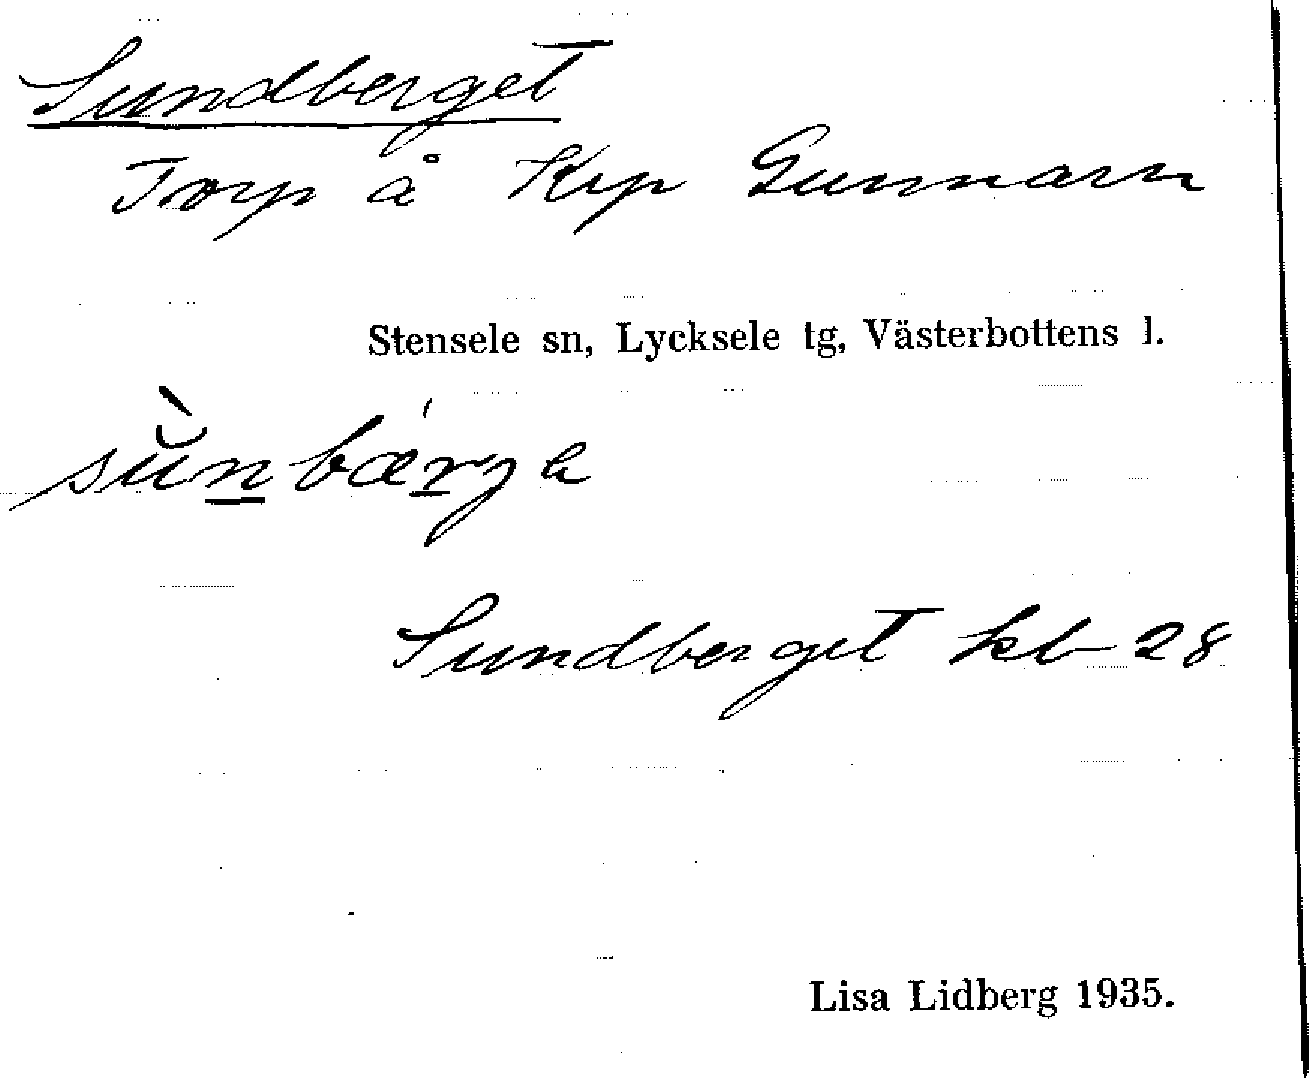 Sundberget
Torp å Krp Gunnarn
Stensele sn, Lycksele tg, Västerbottens l.
sŭ̀n̲bær̲ɟa
Sundberget kb 28
Lisa Lidberg 1935.